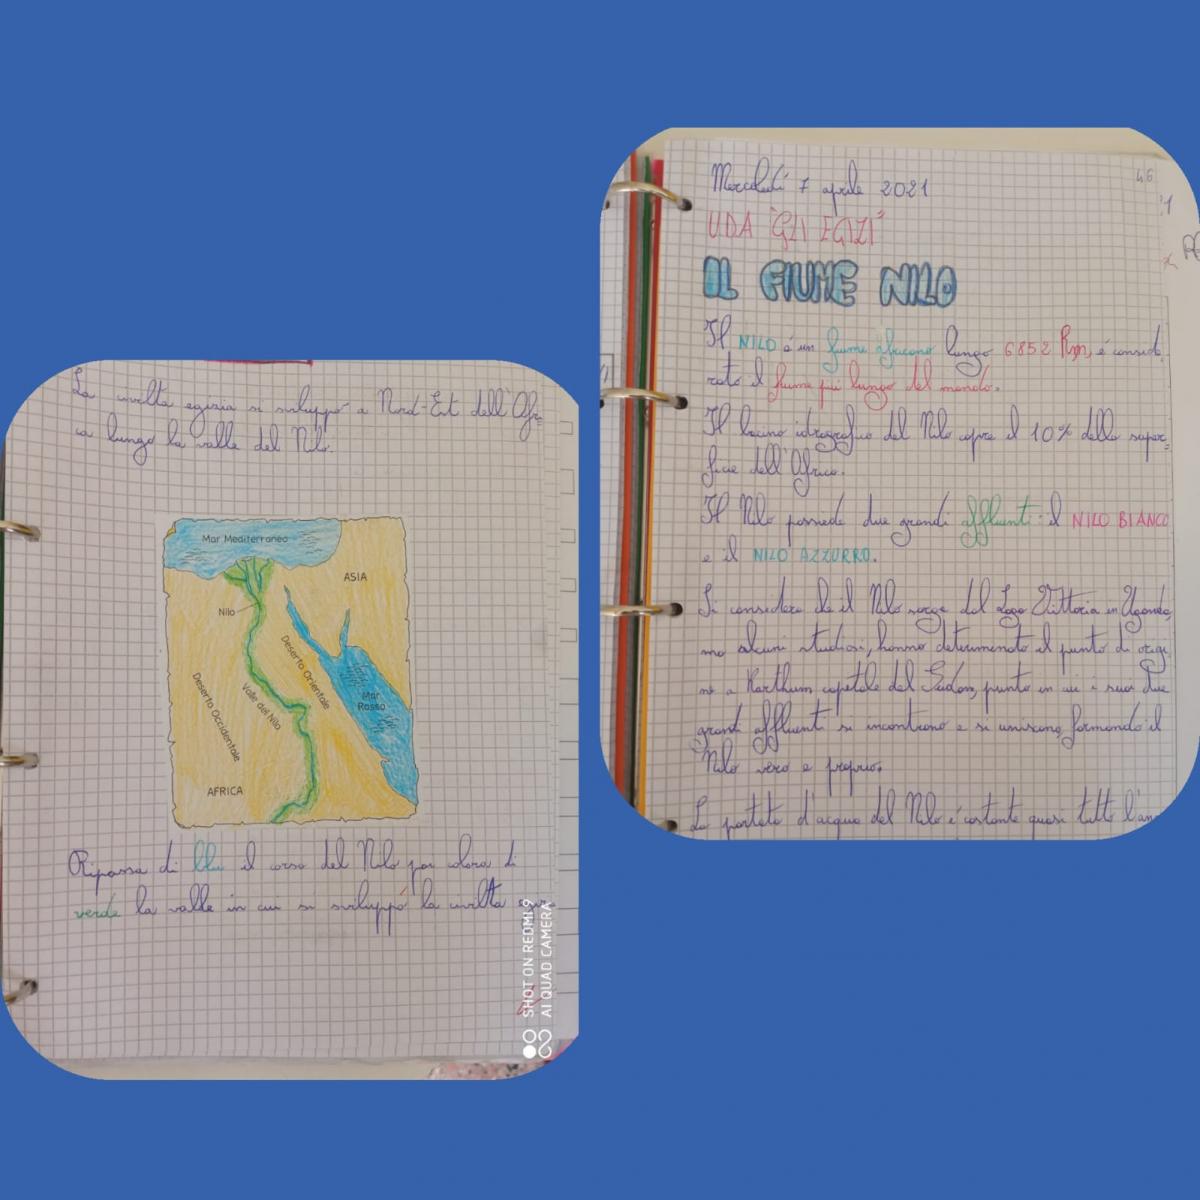 La civiltà egizia si sviluppò a Nord-Est dell'Afri=
ca lungo la valle del Nilo.
Mar Mediterraneo
ASIA
Nilo
Deserto Orientale
Valle del Nilo
Mar
Rosso
Deserto Occidentale
AFRICA
Ripassa di blu il corso del Nilo poi colora di
verde la valle in cui si sviluppò la civiltà
SHOT ON REDMI 9
AI QUAD CAMERA
46
Mercoledì 7 aprile 2021
UDA "GLI EGIZI"
IL FIUME NILO
Il NILO è un fiume africano lungo 6852 Km, è conside
rato il fiume più lungo del mondo.
Il bacino idrografico del Nilo copre il 10% della super=
ficie dell'Africa.
Il Nilo possiede due grandi affluenti: il NILO BIANCO
e il NILO AZZURRO.
Si considera che il Nilo sorge dal Lago Vittoria in Uganda,
ma alcuni studiosi, hanno determinato il punto di origi
ne a Karthum capitale del Sudan, punto in cui i suoi due
grandi affluenti si incontrano e si uniscono, formando il
Nilo vero e proprio.
La portata d'acqua del Nilo è costante quasi tutto l'an